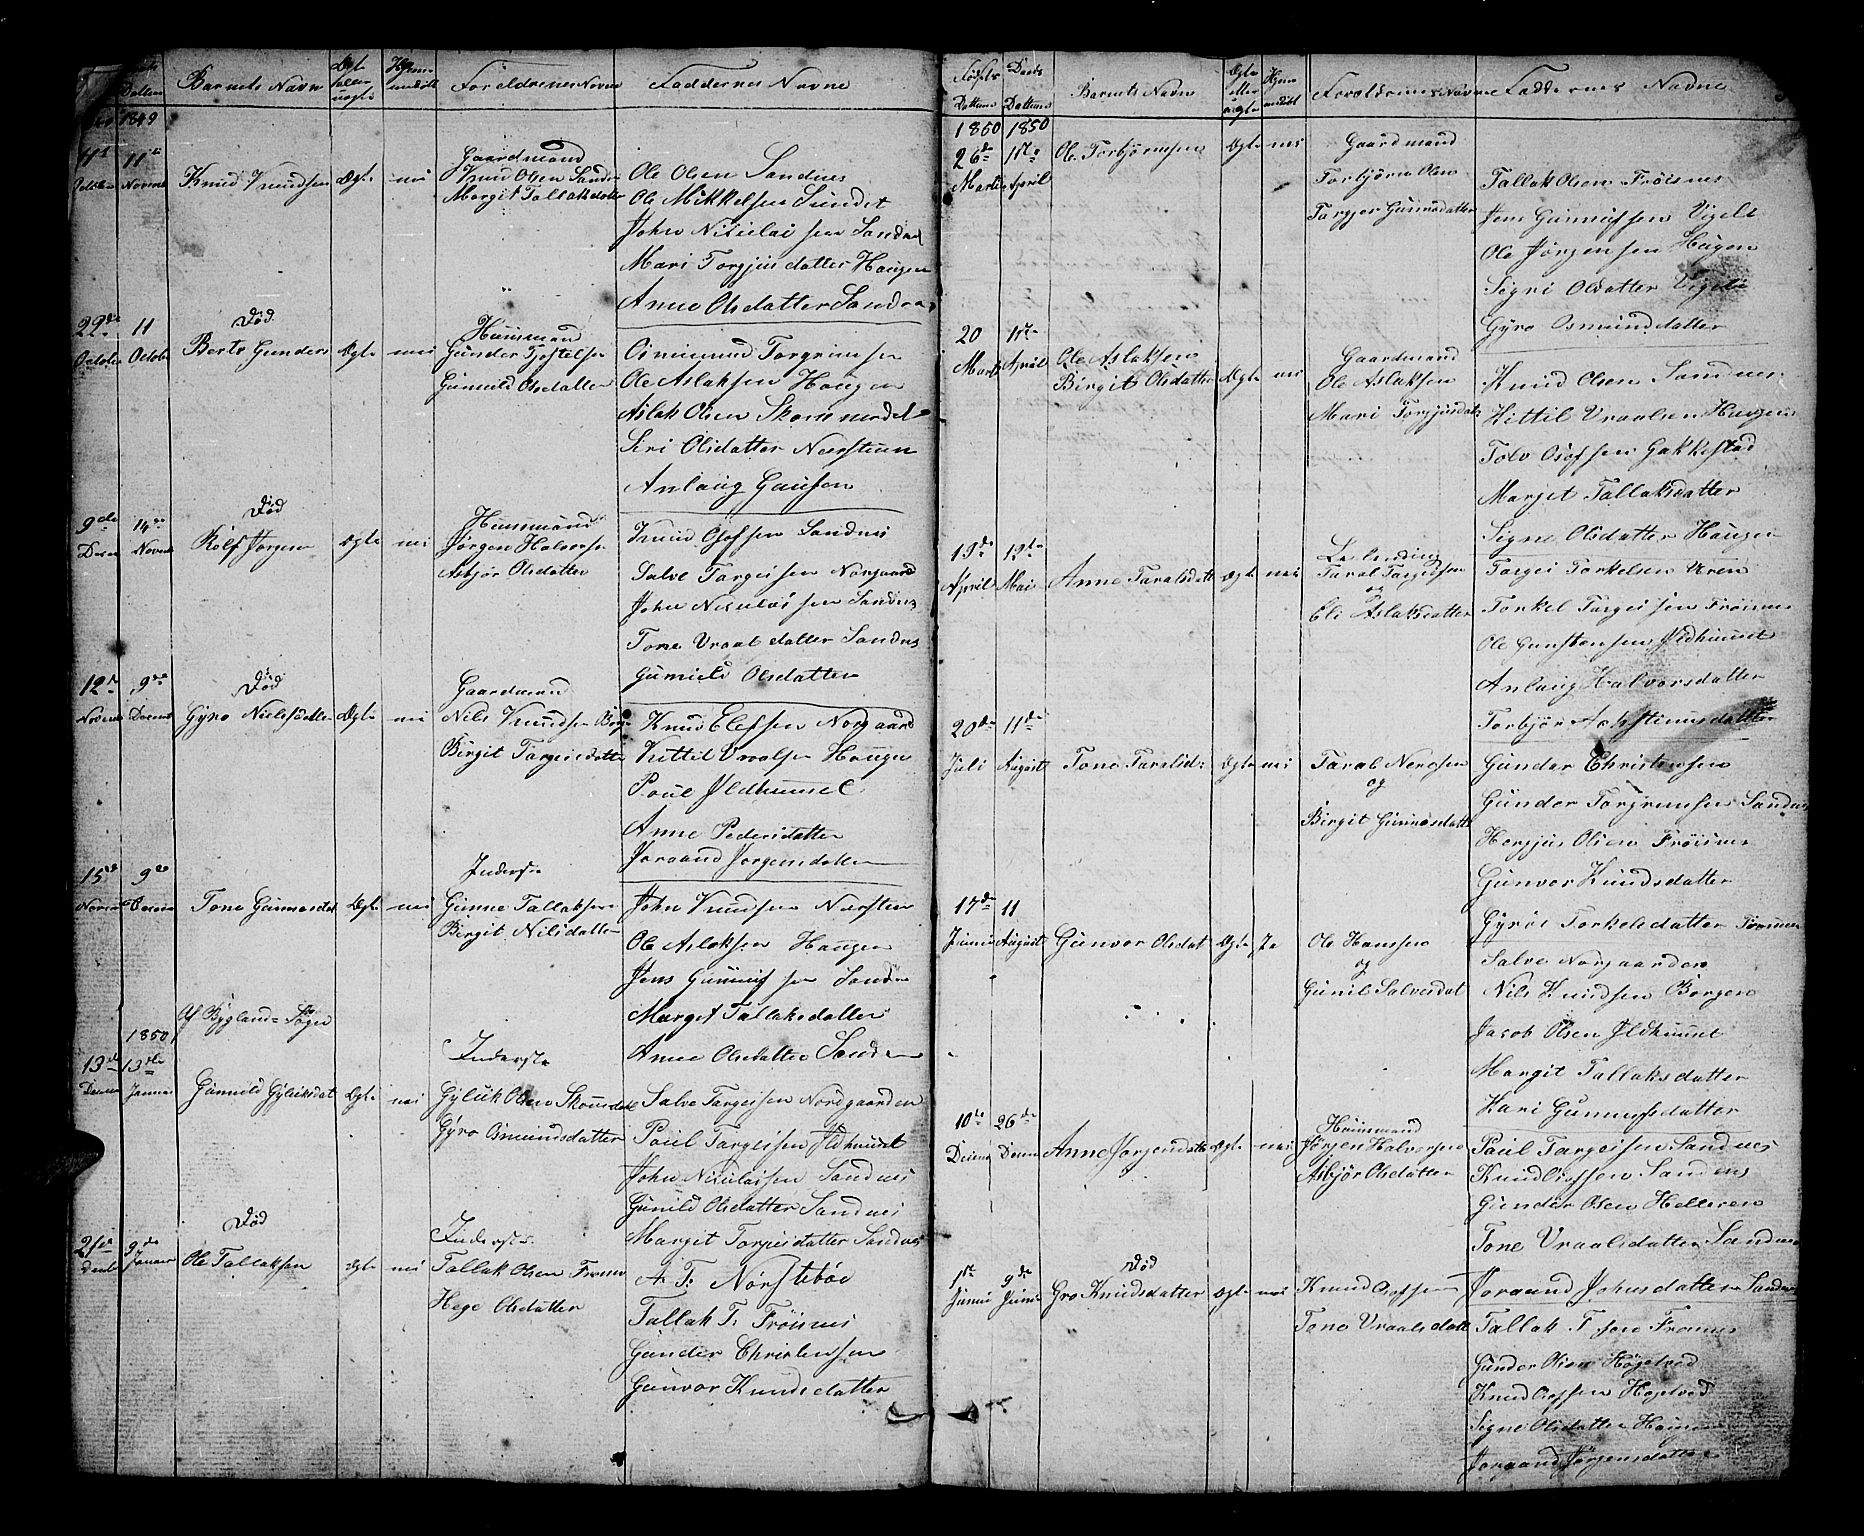 Datten Barnets Navn Ægte eller uægte Hjemmedøbt Foreldrenes Navne Faddernes Navne
1849
11te 11te
October Novemb Knud Knudsen Ægte nei Gaardmand
Knud Olsen Sandnes
Margit Tallaksdatter
Ole Olsen Sandnes
Ole Mikkelsen Sundet
John Nikulaisen Sandnes
Mari Torgjusdatter Haugen
Anne Olsdatter Sandnes
22de 11
October October Død
Berte Gunders Ægte nei Huusmand
Gunder Kjostelsen
Gunuld Olsdatter
Osmund Torgrimsen
Ole Aslaksen Haugen
Aslak Olsen Skomedal
Siri Olsdatter Nærsteen
Anlaug Hansen
9de 14de
Novemb Død
Rolf Jørgensen Ægte nei Huusmand
Jørgen Halvorsen
Asbjør Olsdatter
Knud Olofsen Sandnes
Salve Targeisen Norgaard
John Nikulaisen Sandnes
Tone Vraalsdatter Sandnes
Gunnild Olsdatter
12te 9de
Novemb Decemb Død
Gyro Nielsdatter Ægte nei Gaardmand
Nils Knudsen Borgen
Birgit Targeisdatter
Knud Elefsen Norgaard
Kittil Vraalsen Haugen
Poul Ildhuuset
Anne Pedersdatter
Joraand Jorgensdatter
15de 9de
Novemb Decemb Tone Gunnesdat Ægte nei Inderste
Gunne Tallaksen
Birgit Nilsdatter
John Knudsen Nærsten
Ole Aslaksen Haugen
Jens Gunnufsen Sandnes
Margit Tallaksdatter
Anne Olsdatter Sandnes
Af Bygland-Sogn
1850
13de 13de
Decemb Januar Gunnild Gyluksdat Ægte nei Inderste
Gyluk Olsen Skomedal
Gyro Osmundsdatter
Salve Targeisen Nordgaarden
Paul Targeisen Ildhuuset
John Nikulaisen Sandnes
Gunild Olsdatter Sandnes
Margit Torgeisdatter Sandnes
21de 9de
Decemb Januar Død
Ole Tallaksen Ægte nei Inderste
Tallak Olsen Frøisnes
Hege Olsdatter
A. T. Nørstebøe
Tallak T. Frøisnes
Gunder Christensen
Gunvor Knudsdatter
Fødsels Datten Daabs Datten Barnets Navn Ægte eller uægte Hjemmedøbt Foreldrenes Navne Faddernes Navne
1850 1850
26de 1ste
Marts April Ole Torbjørnsen Ægte nei Gaardmand
Torbjørn Olsen
Targjer Gunnesdatter
Tallak Olsen Frøisnes
Jens Gunnufsen Vigeli
Ole Jørgensen Haugen
Signi Olsdatter Vigeli
Gyro Osmundsdatter
20 1ste
Marts April Ole Aslaksen
Birgit Olsdatter Ægte nei Gaardmand
Ole Aslaksen
Mari Torgjusdatr
Knud Olsen Sandnes
Kittil Vraalsen Haugen
Tolv Olofsen Gakkestad
Margit Tallaksdatter
Signe Olsdatter Haugen
19de 12te
April Mai Anne Taralsdatter Ægte nei Leilending
Taral Targeisen
og
Eli Aslaksdatter
Targei Torkelsen Uren
Torkel Targeisen Frøisnes
Ole Gunstensen Ildhuuset
Anlaug Halvorsdatter
Torbjør Augstinusdatter
20de 11de
Juli August Tone Taralsd: Ægte nei Taral Nerdsen
og
Birgit Gunnesdatter
Gunder Christensen
Gunder Torgrimsen Sandnes
Horgjus Olsen Frøisnes
Gunvor Knudsdatter
Gyroi Torkelsdatter Frøisnes
17de 11
Junii August Gunvor Olsdat Ægte Ja Ole Hanssen
og
Gunil Salvesdat
Salve Norgaarden
Nils Knudsen Borgen
Jacob Olsen Ildhuuset
Margit Tallaksdatter
Kari Gunnufsdatter
10de 26de
Decemb Decemb Anne Jørgensdatter Ægte nei Huusmand
Jørgen Halvorsen
Asbjør Olsdatter
Paul Targeisen Sandnes
Knud Olofsen Sandnes
Gunder Olsen Helleren
Tone Vraalsdatter Sandnes
Joraand Johnsdatter Sandnes
1ste 9de
Junii Junii Død
Gro Knudsdatter Ægte nei Knud Olofsen
Tone Vraalsdatt
Tallak T sen Frøisnes
Gunder Olsen Høgetved
Knud Olofsen Høgetved
Signe Olsdatter
Joraand Jørgensdatter